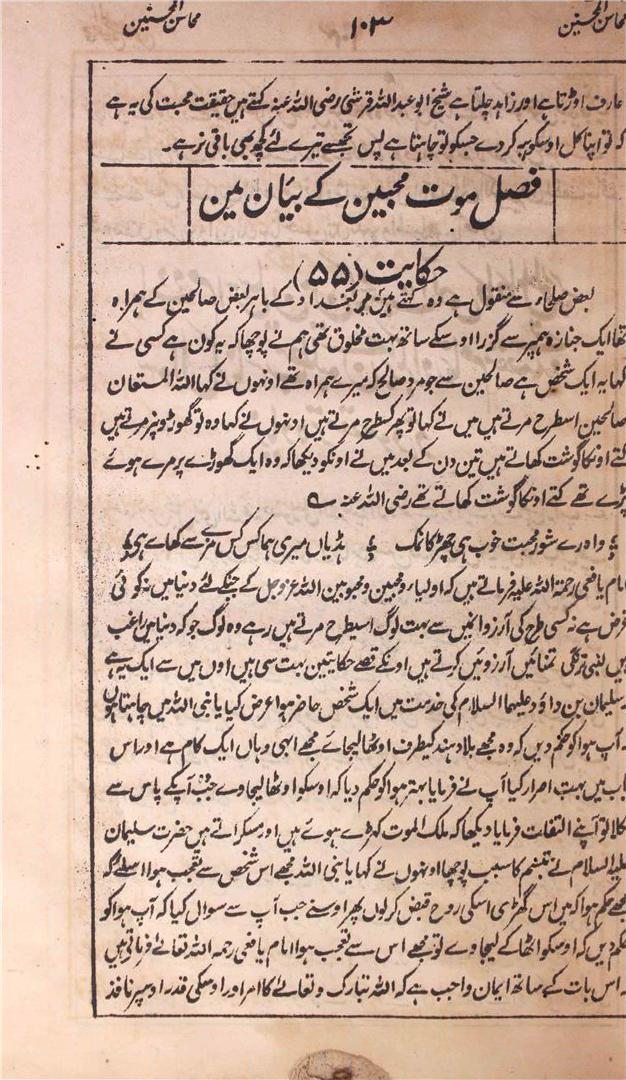 محاسن المحسنین ۱۰۳ محاسن المحسنین
عارف اوڑتا ہے اور زاہد چلتا ہے شیخ ابو عبد اللہ قرشی رضی اللہ عنہ کہتے ہیں حقیقت محبت کی یہ ہے
کہ تو اپنا کل اوسکو ہبہ کر دے جسکو تو چاہتا ہے پس تجھسے تیرے لئے کچھ بھی باقی نرہے۔
فصل موت محبین کے بیان مین
حکایت (۵۵)
بعض صلحاء سے منقول ہے وہ کہتے ہیں میں بغداد کے باہر بعض صالحین کے ہمراہ
تھا ایک جنازہ ہمپر سے گزرا اوسکے ساتھ بہت مخلوق تھی ہم نے پوچھا کہ یہ کون ہے کسی نے
کہا یہ ایک شخص ہے صالحین سے جو مرد صالح کہ میرے ہمراہ تھے اونہوں نے کہا اللہ المستعان
صالحین اسطرح مرتے ہیں میں نے کہا تو پھر کسطرح مرتے ہیں اونہوں نے کہا وہ تو گھوڑونپر مرتے ہیں
کتے اونکا گوشت کھاتے ہیں تین دن کے بعد میں نے اونکو دیکھا کہ وہ ایک گھوڑے پر مرے ہوئے
پڑے تھے کتے اونکا گوشت کھاتے تھے رضی اللہ عنہ ؎
واہ رے شور محبت خوب ہی چھڑکا نمک ہڈیاں میری ہما کس کس مزے سے کھائے ہے
امام یافعی رحمۃ اللہ علیہ فرماتے ہیں کہ اولیاء ومحبین ومحبوبین اللہ عزوجل کے جنکے لئے دنیا میں نہ کوئی
غرض ہے نہ کسی طرح کی آرزو انمیں سے بہت لوگ اسیطرح مرتے ہیں رہے وہ لوگ جو کہ دنیا میں راغب
ہیں لنبی زندگی تمنائیں آرزوئیں کرتے ہیں اونکے قصے حکایتیں بہت سی ہیں اوں میں سے ایک یہ ہے
سلیمان بن داؤد علیہما السلام کی خدمت میں ایک شخص حاضر ہوا عرض کیا یا نبی اللہ میں چاہتا ہوں
آپ ہوا کو حکم دیں کہ وہ مجھے بلاد ہند کیطرف اوٹھا لیجائے مجھے ابھی وہاں ایک کام ہے اور اس
باب میں بہت اصرار کیا آپ نے فرمایا بہتر ہوا کو حکم دیا کہ اوسکو اوٹھا لیجاوے جب وہ آپکے پاس سے
نکلا تو آپنے التفات فرمایا دیکھا کہ ملک الموت کھڑے ہوئے ہیں اور مسکراتے ہیں حضرت سلیمان
علیہ السلام نے تبسم کا سبب پوچھا اونہوں نے کہا یا نبی اللہ مجھے اس شخص سے تعجب ہوا اسلئے کہ
مجھے حکم ہوا کہ میں اس گھڑی اسکی روح قبض کرلوں پھر اوسنے جب آپ سے سوال کیا کہ آپ ہوا کو
حکم دیں کہ اوسکو اٹھا کے لیجاوے تو مجھے اس سے تعجب ہوا امام یافعی رحمہ اللہ تعالےٰ فرماتے ہیں
اس بات کے ساتھ ایمان واجب ہے کہ اللہ تبارک وتعالےٰ کا امر اور اوسکی قدر اوسپر نافذ